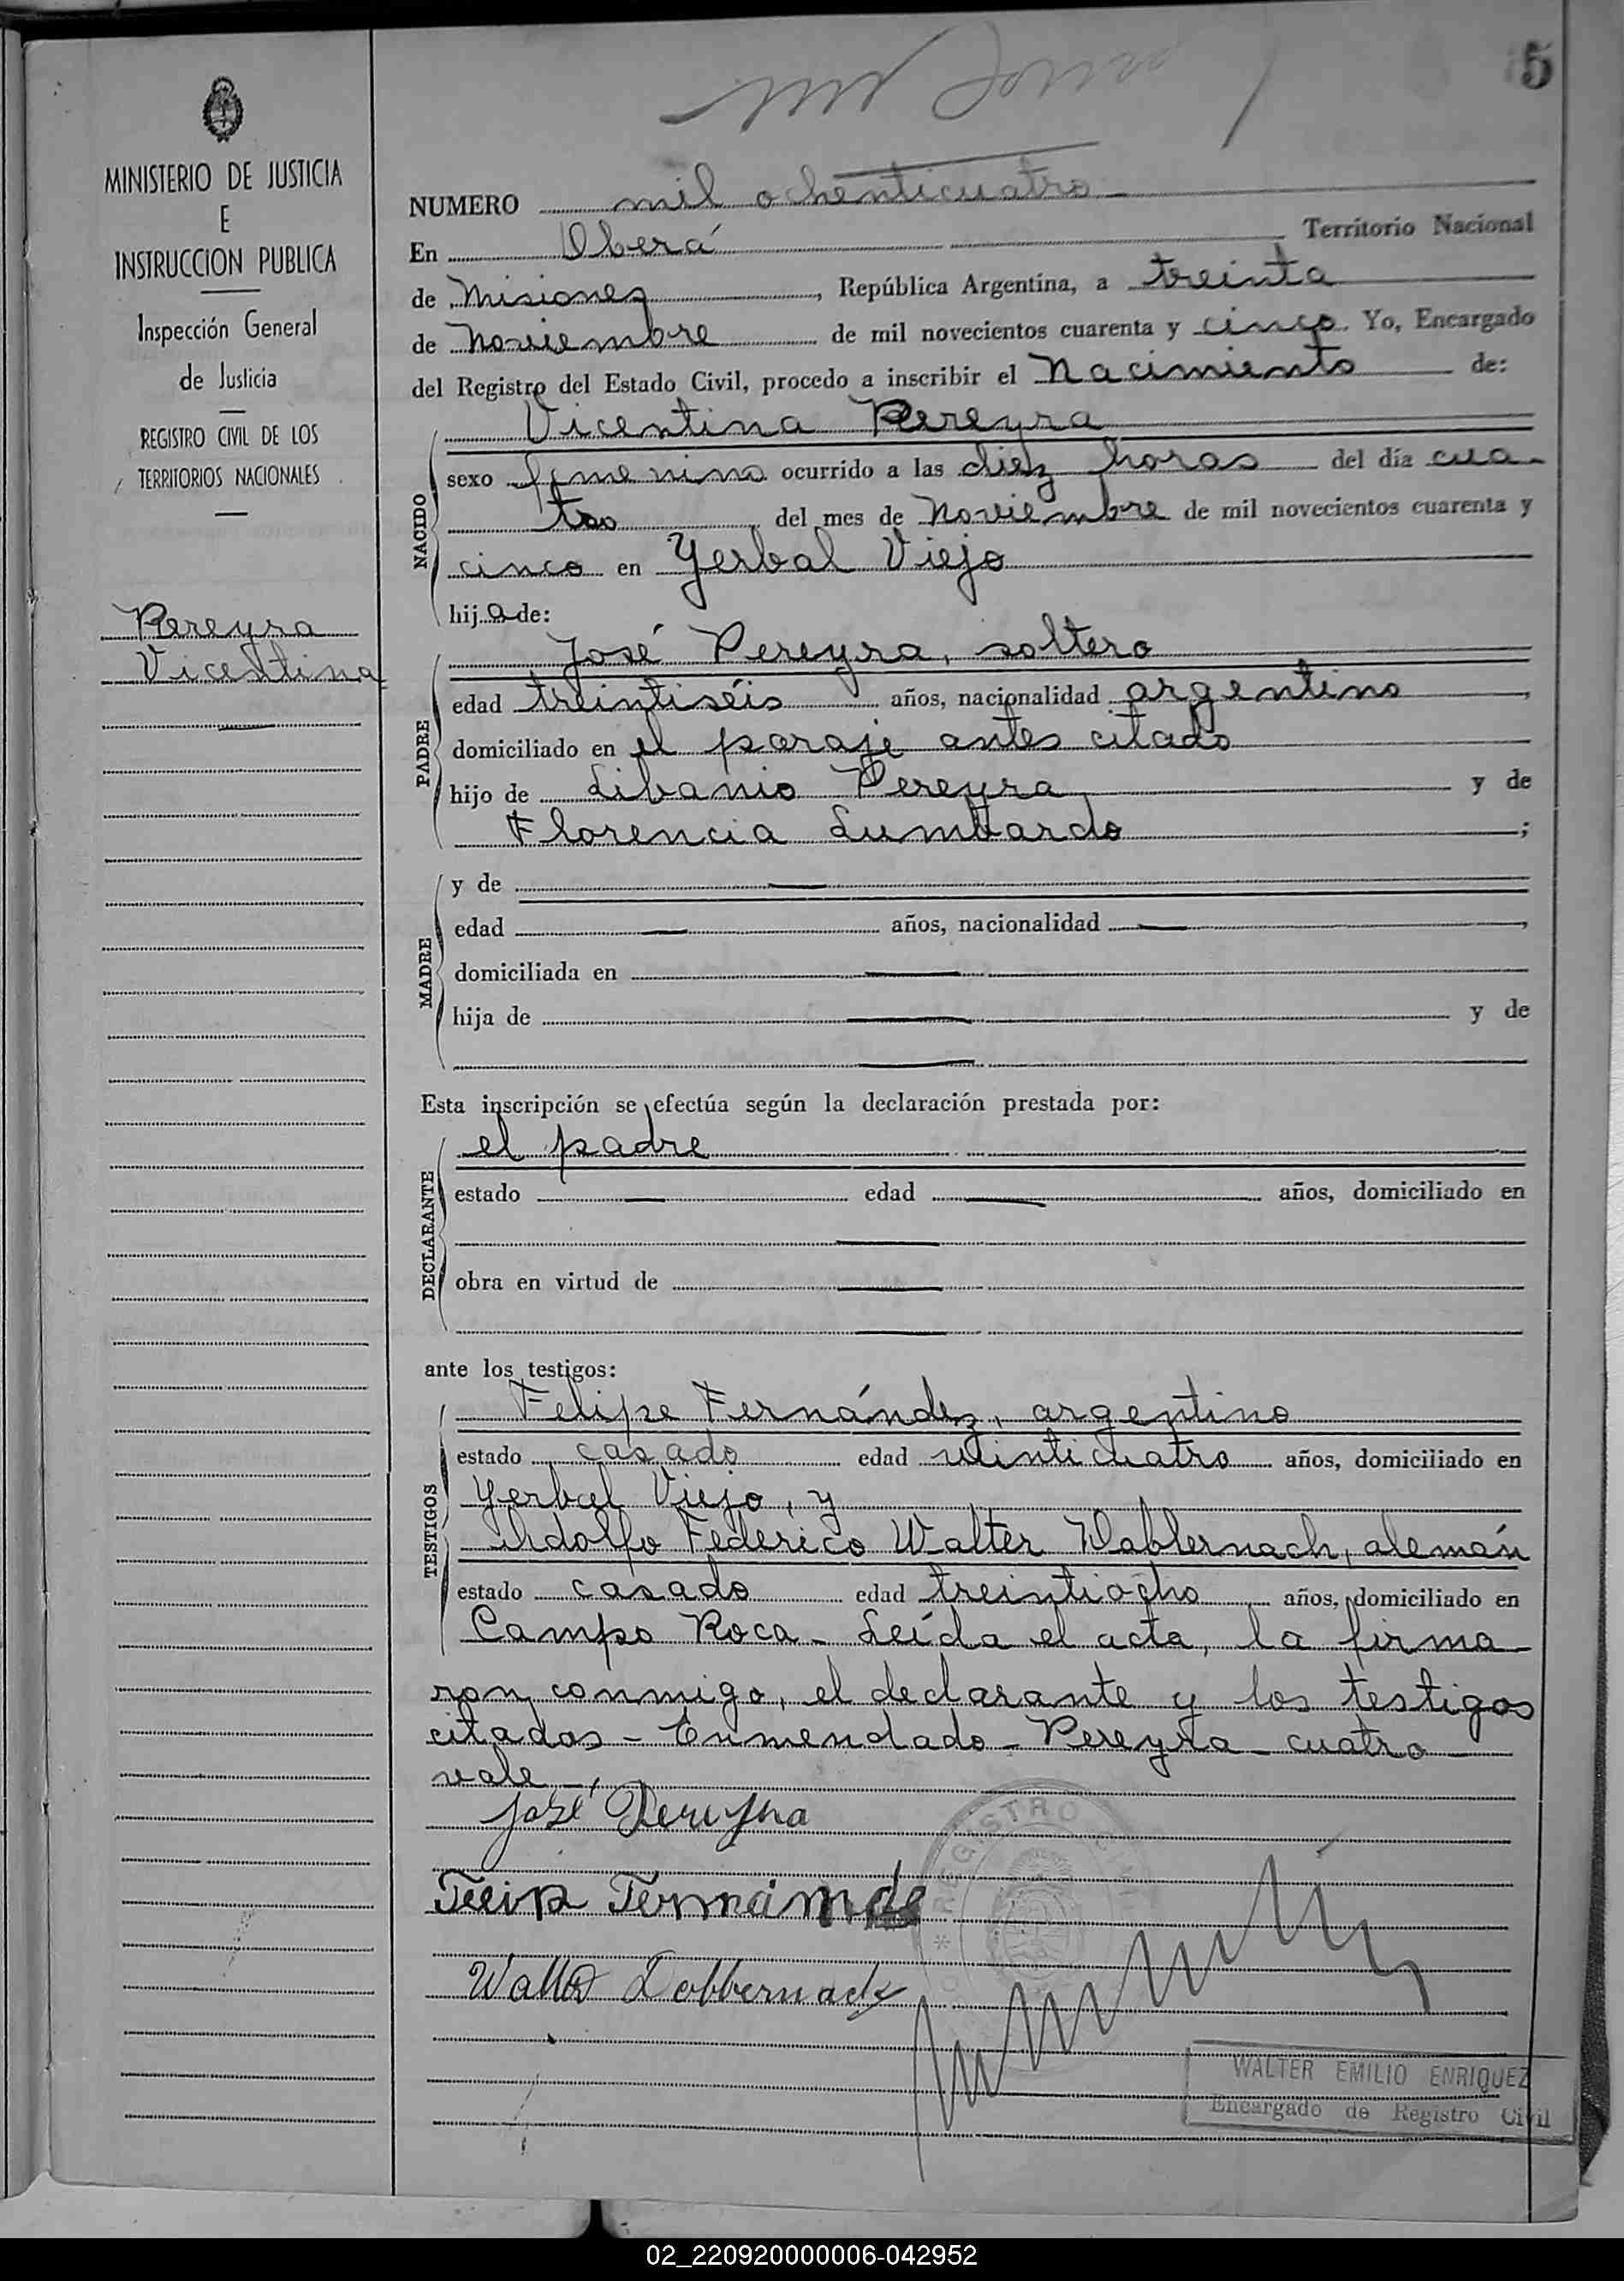 5
NUMERO mil ochenticuatro
En Oberá Territorio Nacional
de Misiones, República Argentina, a treinta
de Noviembre de mil novecientos cuarenta y cinco. Yo, Encargado
del Registro del Estado Civil, procedo a inscribir el Nacimiento de:
MINISTERIO DE JUSTICIA
E
INSTRUCCION PUBLICA
Inspección General
de Justicia
REGISTRO CIVIL DE LOS
TERRITORIOS NACIONALES
Pereyra
Vicentina
NACIDO
Vicentina Pereyra
sexo femenino ocurrido a las diez horas del día cua-
tro del mes de Noviembre de mil novecientos cuarenta y
cinco en Yerbal Viejo
hija de:
PADRE
José Pereyra, soltero
edad treintiséis años, nacionalidad argentino,
domiciliado en el paraje antes citado
hijo de Libanio Pereyra y de
Florencia Lumbardo;
MADRE
y de
edad años, nacionalidad,
domiciliada en
hija de y de
Esta inscripción se efectúa según la declaración prestada por:
DECLARANTE
el padre
estado edad años, domiciliado en
obra en virtud de
ante los testigos:
TESTIGOS
Felipe Fernández, argentino
estado casado edad veinticuatro años, domiciliado en
Yerbal Viejo, y
Adolfo Federico Walter Dablernach, alemán
estado casado edad treintiocho años, domiciliado en
Campo Roca - Leída el acta, la firma-
ron conmigo, el declarante y los testigos
citados - Enmendado - Pereyra - cuatro -
vale -
José Pereyra
Felipe Fernández
Walter Dobbernack
REGISTRO CIVIL
WALTER EMILIO ENRIQUEZ
Encargado de Registro Civil
02_220920000006-042952